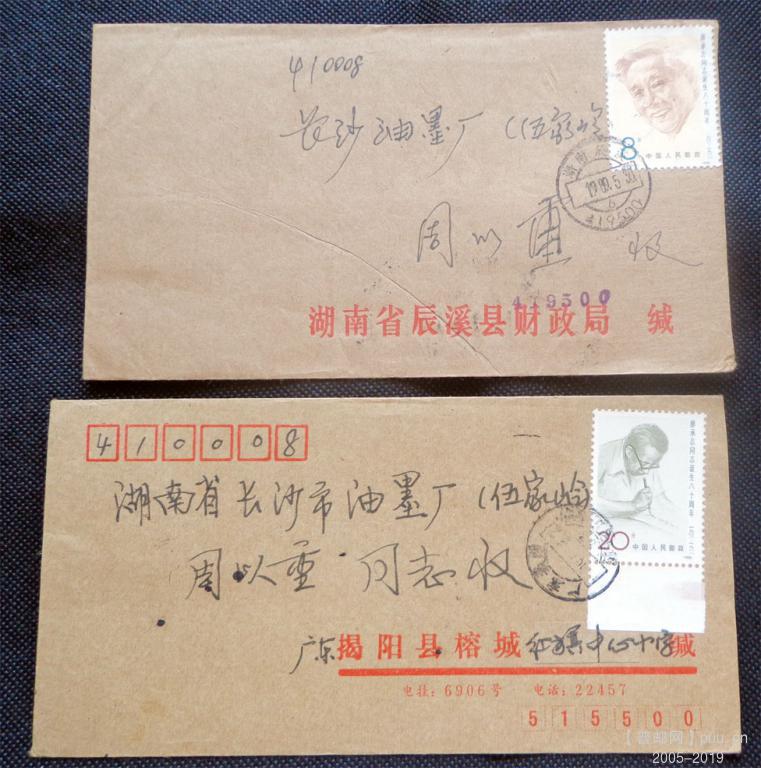 410008
长沙油墨厂(伍家岭
周以重 收
419300
湖南省辰溪县财政局 缄
廖承志同志诞生八十周年
8
中国人民邮政
湖南
1990.5.30
419500
410008
湖南省长沙市油墨厂(伍家岭)
周以重 同志收
廖承志同志诞生八十周年
20
中国人民邮政
广东揭阳县榕城红旗中心小学缄
电挂:6906号 电话:22457
515500
【普邮网】puu.cn
2005-2019